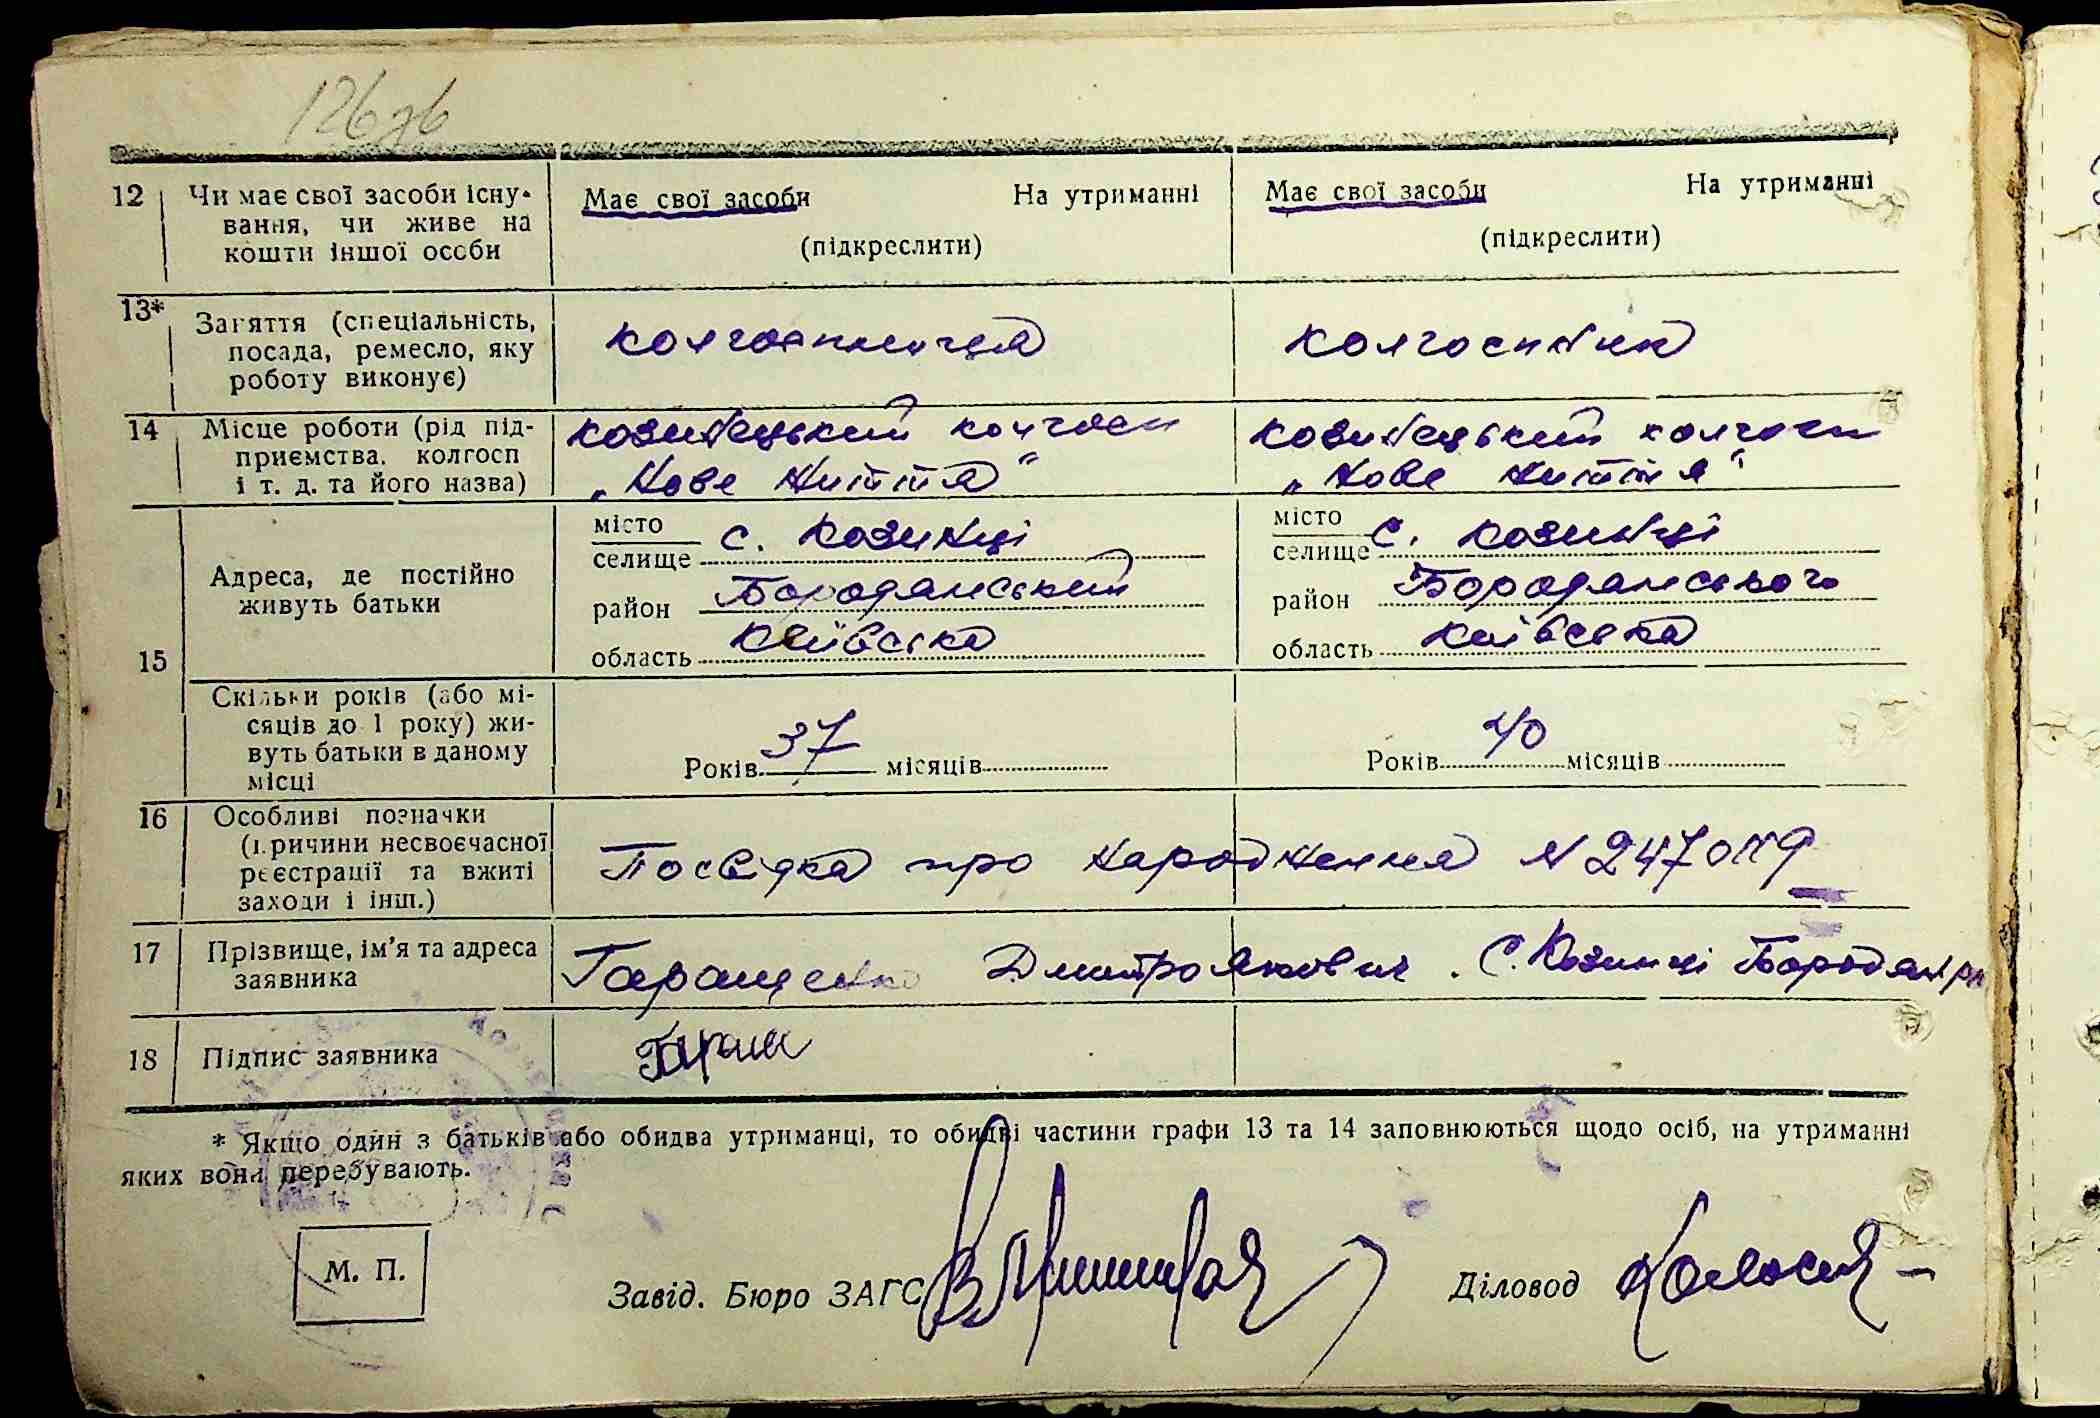 126зв
12 Чи має свої засоби існу-
вання, чи живе на
кошти іншої особи
Має свої засоби На утриманні
(підкреслити)
Має свої засоби На утриманні
(підкреслити)
13* Заняття (спеціальність,
посада, ремесло, яку
роботу виконує)
колгоспниця
колгоспник
14 Місце роботи (рід під-
приємства, колгосп
і т. д. та його назва)
козинецький колгосп
„Нове життя“
козинецький колгосп
„Нове життя“
15 Адреса, де постійно
живуть батьки
місто
селище с. Козинці
район Бородянський
область Київська
місто
селище с. Козинці
район Бородянського
область Київська
Скільки років (або мі-
сяців до 1 року) жи-
вуть батьки в даному
місці
Років 37 місяців
Років 40 місяців
16 Особливі позначки
(причини несвоєчасної
реєстрації та вжиті
заходи і інш.)
Посвідка про народження N
17 Прізвище, ім'я та адреса
заявника
Гаращенко Дмитро Якович. С. Козинці Бородян рн
18 Підпис заявника
Гаращ
* Якщо один з батьків або обидва утриманці, то обидві частини графи 13 та 14 заповнюються щодо осіб, на утриманні
яких вони перебувають.
М. П.
Завід. Бюро ЗАГС
Діловод